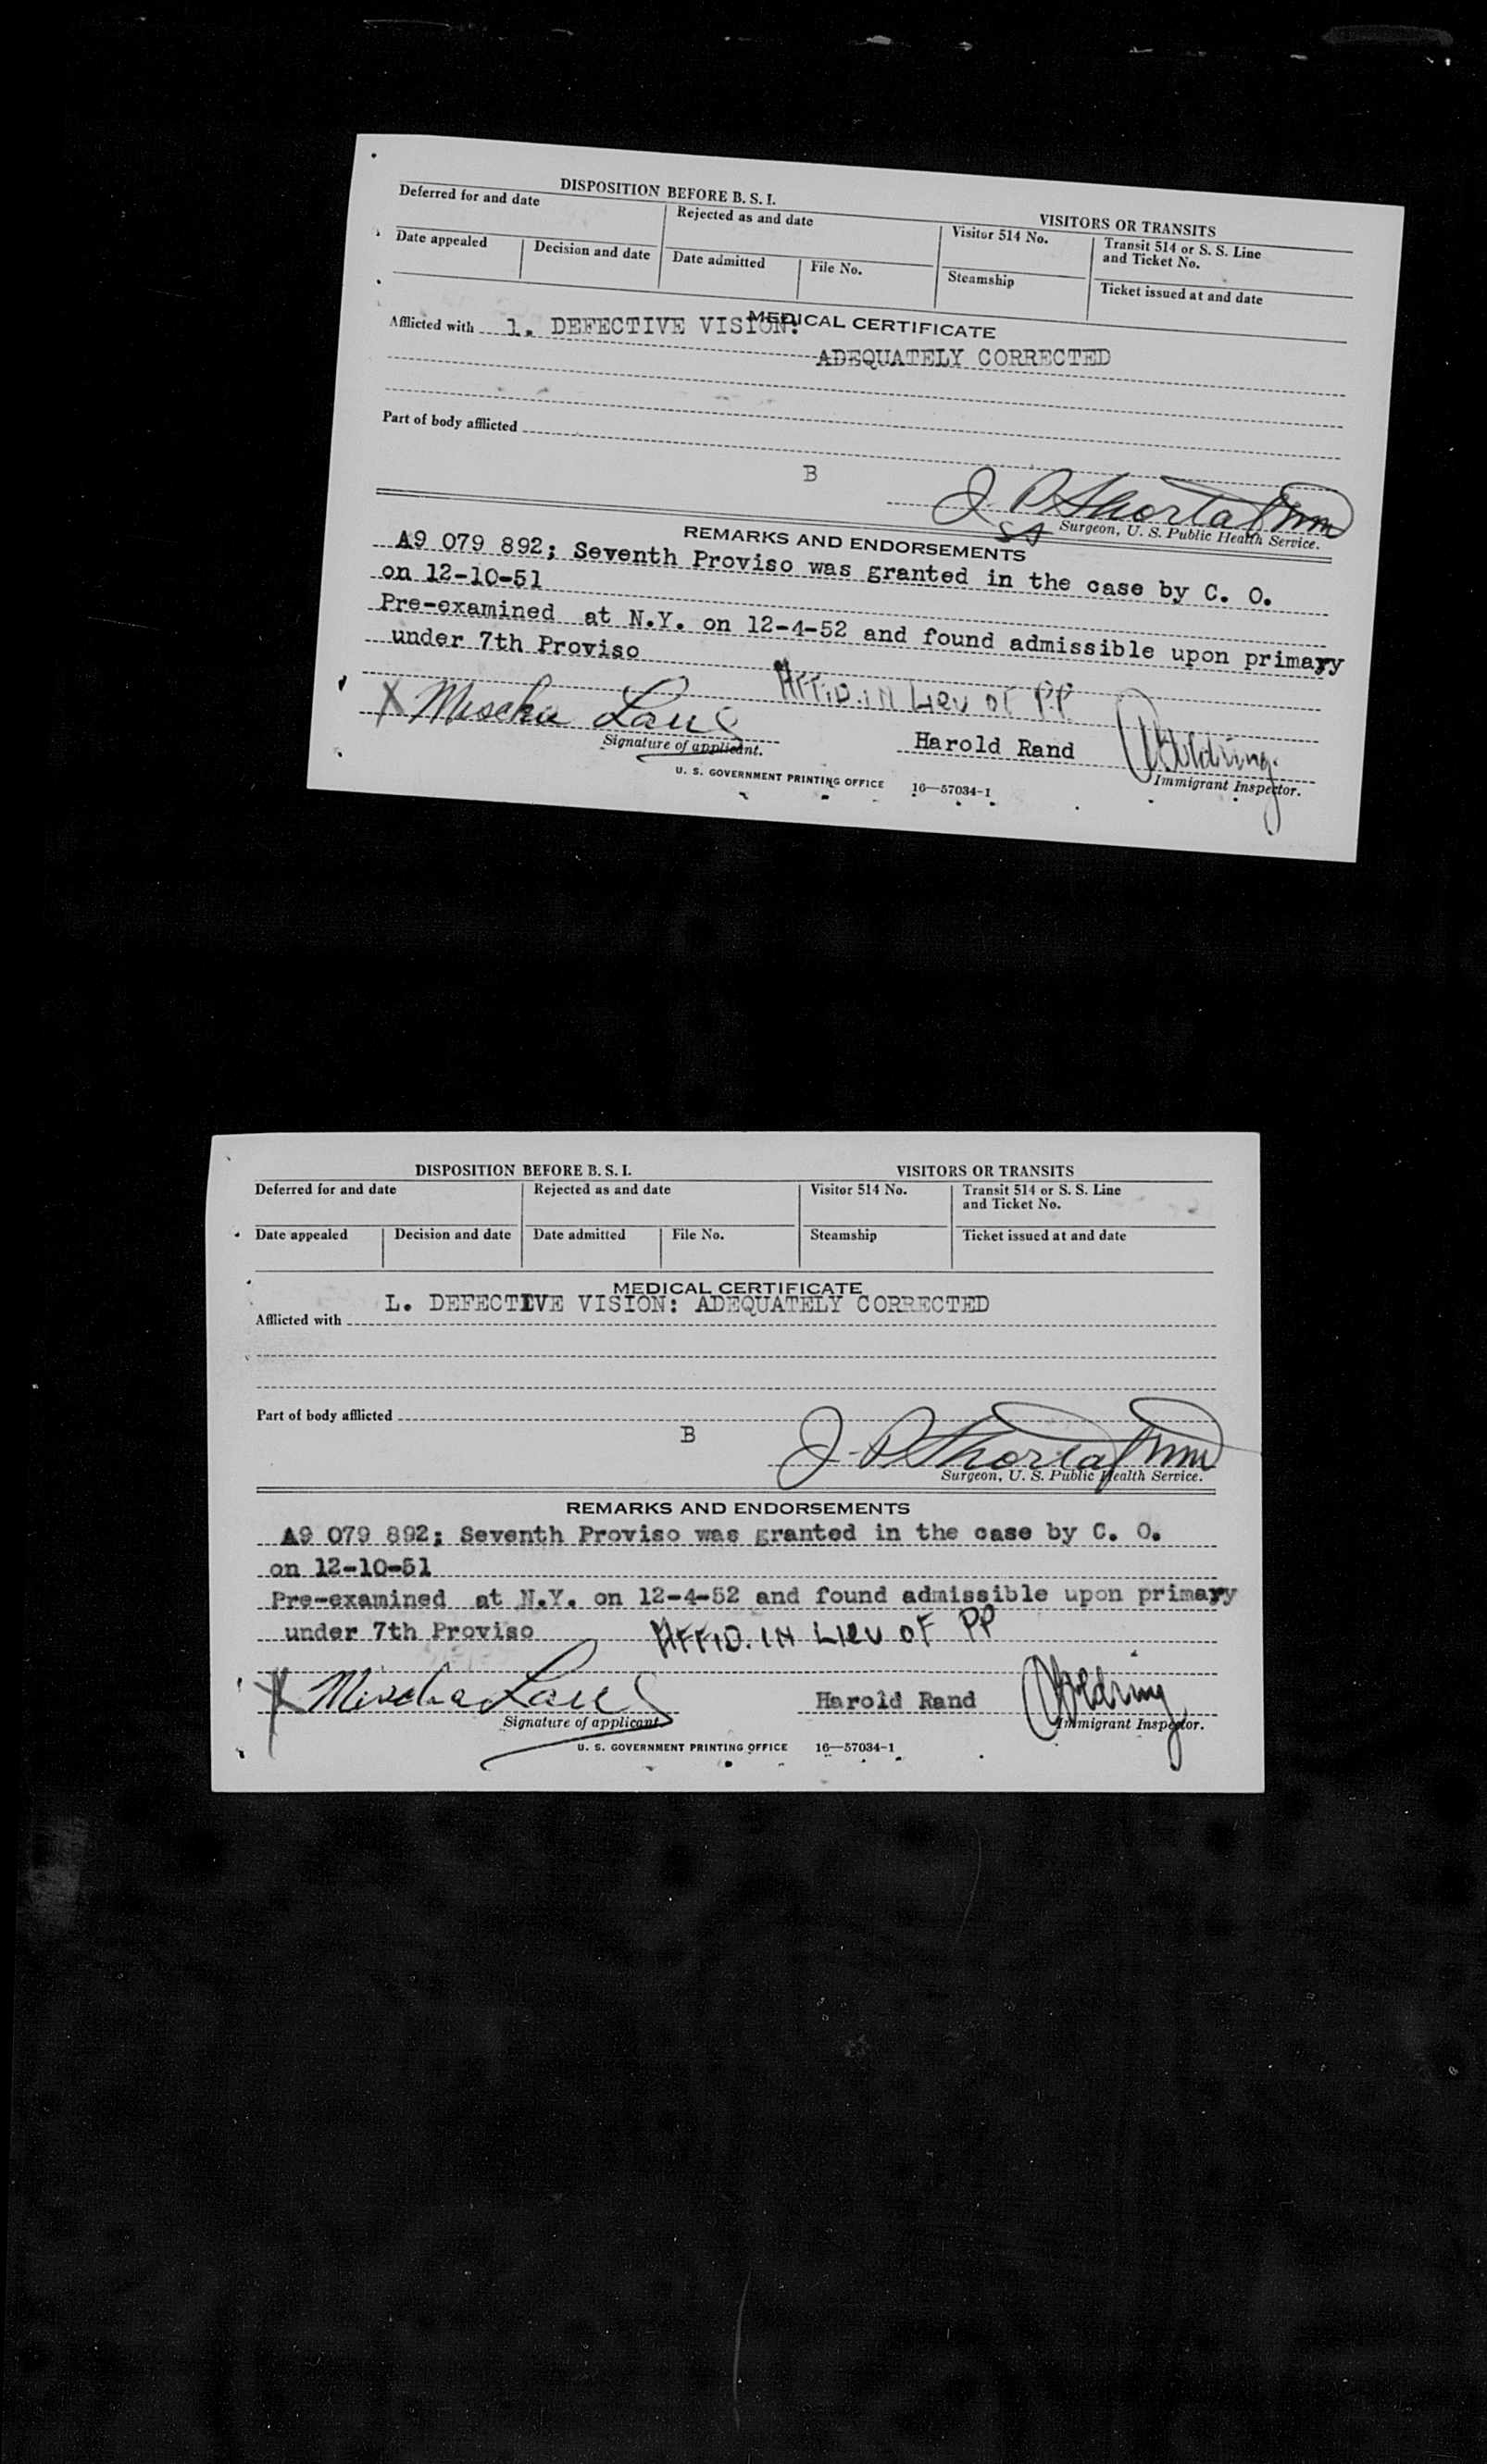 DISPOSITION BEFORE B. S. I.
VISITORS OR TRANSITS
Deferred for and date
Rejected as and date
Visitor 514 No.
Transit 514 or S. S. Line
and Ticket No.
Date appealed
Decision and date
Date admitted
File No.
Steamship
Ticket issued at and date
MEDICAL CERTIFICATE
Afflicted with 1. DEFECTIVE VISION:
ADEQUATELY CORRECTED
Part of body afflicted
B
Surgeon, U. S. Public Health Service.
REMARKS AND ENDORSEMENTS
A9 079 892; Seventh Proviso was granted in the case by C. O.
on 12-10-51
Pre-examined at N.Y. on 12-4-52 and found admissible upon primary
under 7th Proviso
AFFID. IN LIEU OF PP
X Mischa
Signature of applicant.
Harold Rand
Immigrant Inspector.
U. S. GOVERNMENT PRINTING OFFICE 16—57034-1
DISPOSITION BEFORE B. S. I.
VISITORS OR TRANSITS
Deferred for and date
Rejected as and date
Visitor 514 No.
Transit 514 or S. S. Line
and Ticket No.
Date appealed
Decision and date
Date admitted
File No.
Steamship
Ticket issued at and date
MEDICAL CERTIFICATE
L. DEFECTIVE VISION: ADEQUATELY CORRECTED
Afflicted with
Part of body afflicted
B
Surgeon, U. S. Public Health Service.
REMARKS AND ENDORSEMENTS
A9 079 892; Seventh Proviso was granted in the case by C. O.
on 12-10-51
Pre-examined at N.Y. on 12-4-52 and found admissible upon primary
under 7th Proviso AFFID. IN LIEU OF PP
X Mischa
Harold Rand
Signature of applicant.
Immigrant Inspector.
U. S. GOVERNMENT PRINTING OFFICE 16—57034-1